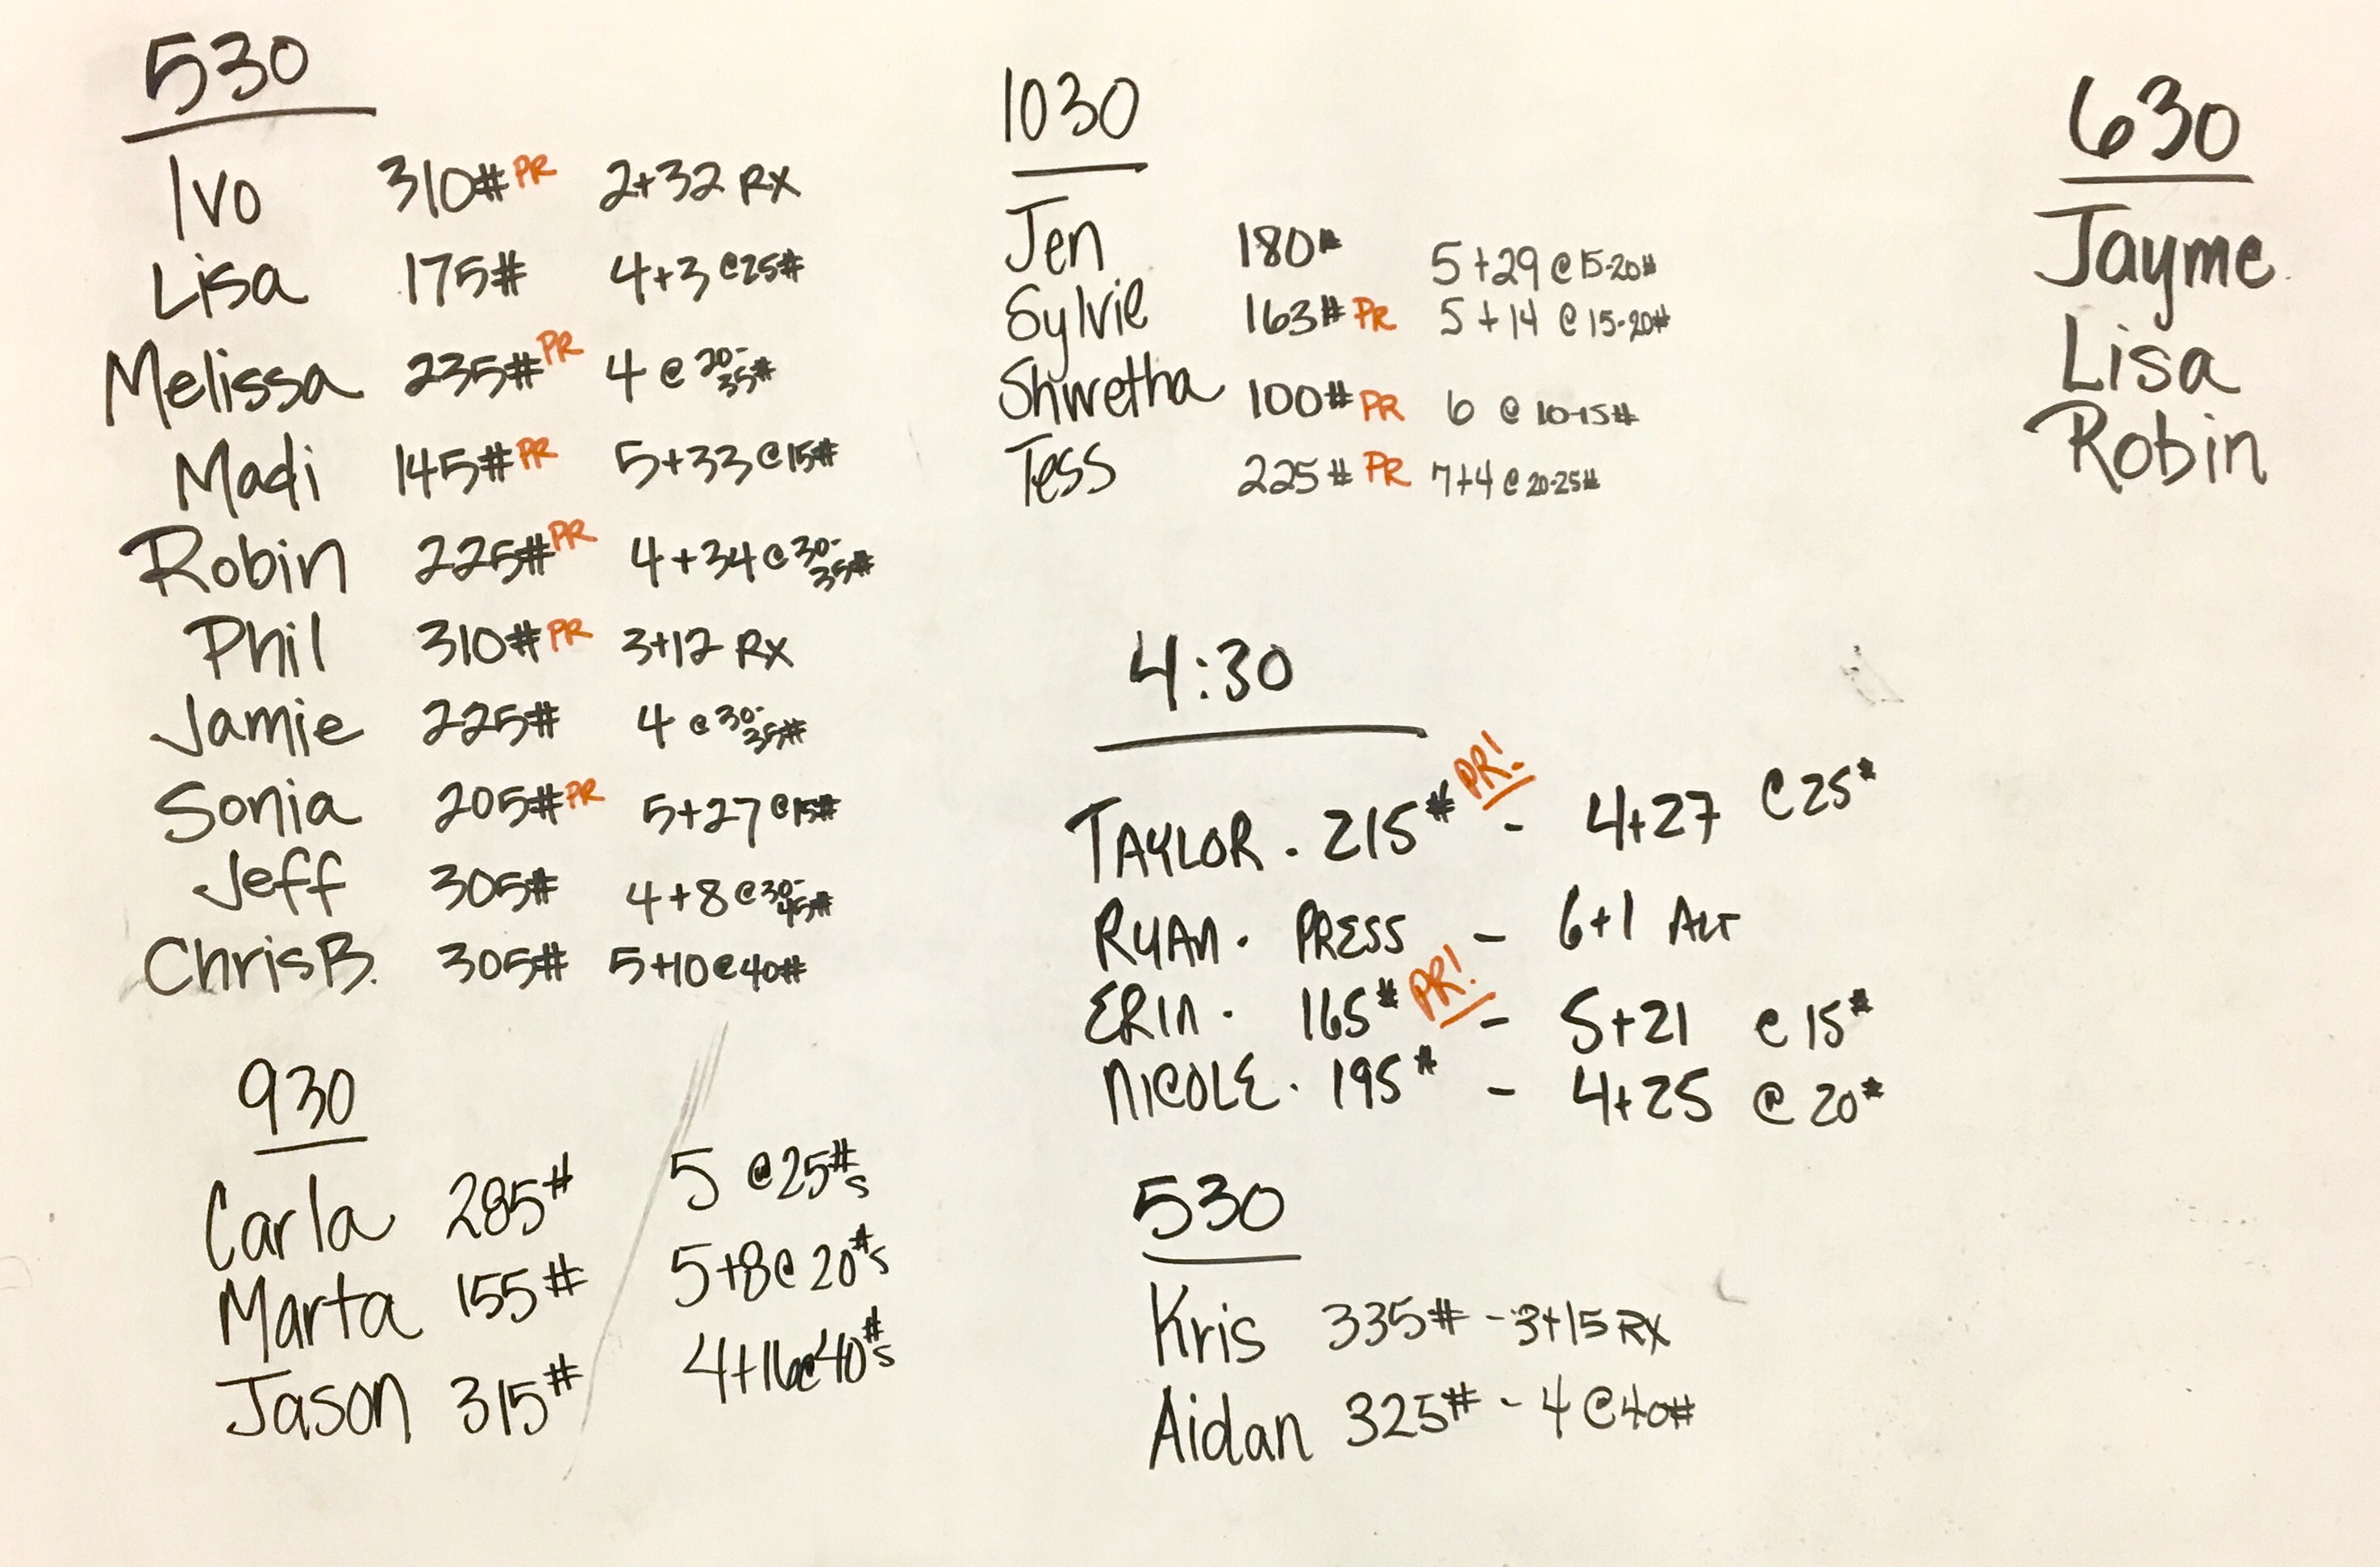 530
Ivo 310# PR 2+32 RX
Lisa 175# 4+3 @25#
Melissa 235# PR 4 @ 20-35#
Madi 145# PR 5+33 @15#
Robin 225# PR 4+34 @ 30-35#
Phil 310# PR 3+12 RX
Jamie 225# 4 @ 30-35#
Sonia 205# PR 5+27 @15#
Jeff 305# 4+8 @ 30-45#
Chris B. 305# 5+10 @ 40#
930
Carla 285# 5 @25#s
Marta 155# 5+8 @ 20#s
Jason 315# 4+16 @ 40#s
1030
Jen 180# 5+29 @ 15-20#
Sylvie 163# PR 5+14 @ 15-20#
Shwetha 100# PR 6 @ 10-15#
Tess 225# PR 7+4 @ 20-25#
4:30
TAYLOR. 215# PR! - 4+27 @25#
RYAN. PRESS - 6+1 ALT
ERIN. 165# PR! - 5+21 @ 15#
NICOLE. 195# - 4+25 @ 20#
530
Kris 335# - 3+15 RX
Aidan 325# - 4 @40#
630
Jayme
Lisa
Robin